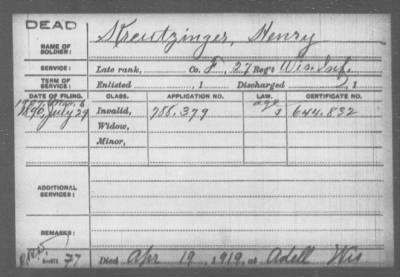 DEAD
NAME OF SOLDIER: Kreutzinger, Henry
SERVICE: Late rank, Co. F, 27 Reg't Wis. Inf.
TERM OF SERVICE: Enlisted , 1 Discharged , 1
DATE OF FILING. CLASS. APPLICATION NO. LAW. CERTIFICATE NO.
1907,
1890, July 29 Invalid, 788.379 age 644.832
Widow,
Minor,
ADDITIONAL SERVICES:
REMARKS:
77 Died Apr 19, 1919, at Adell Wis